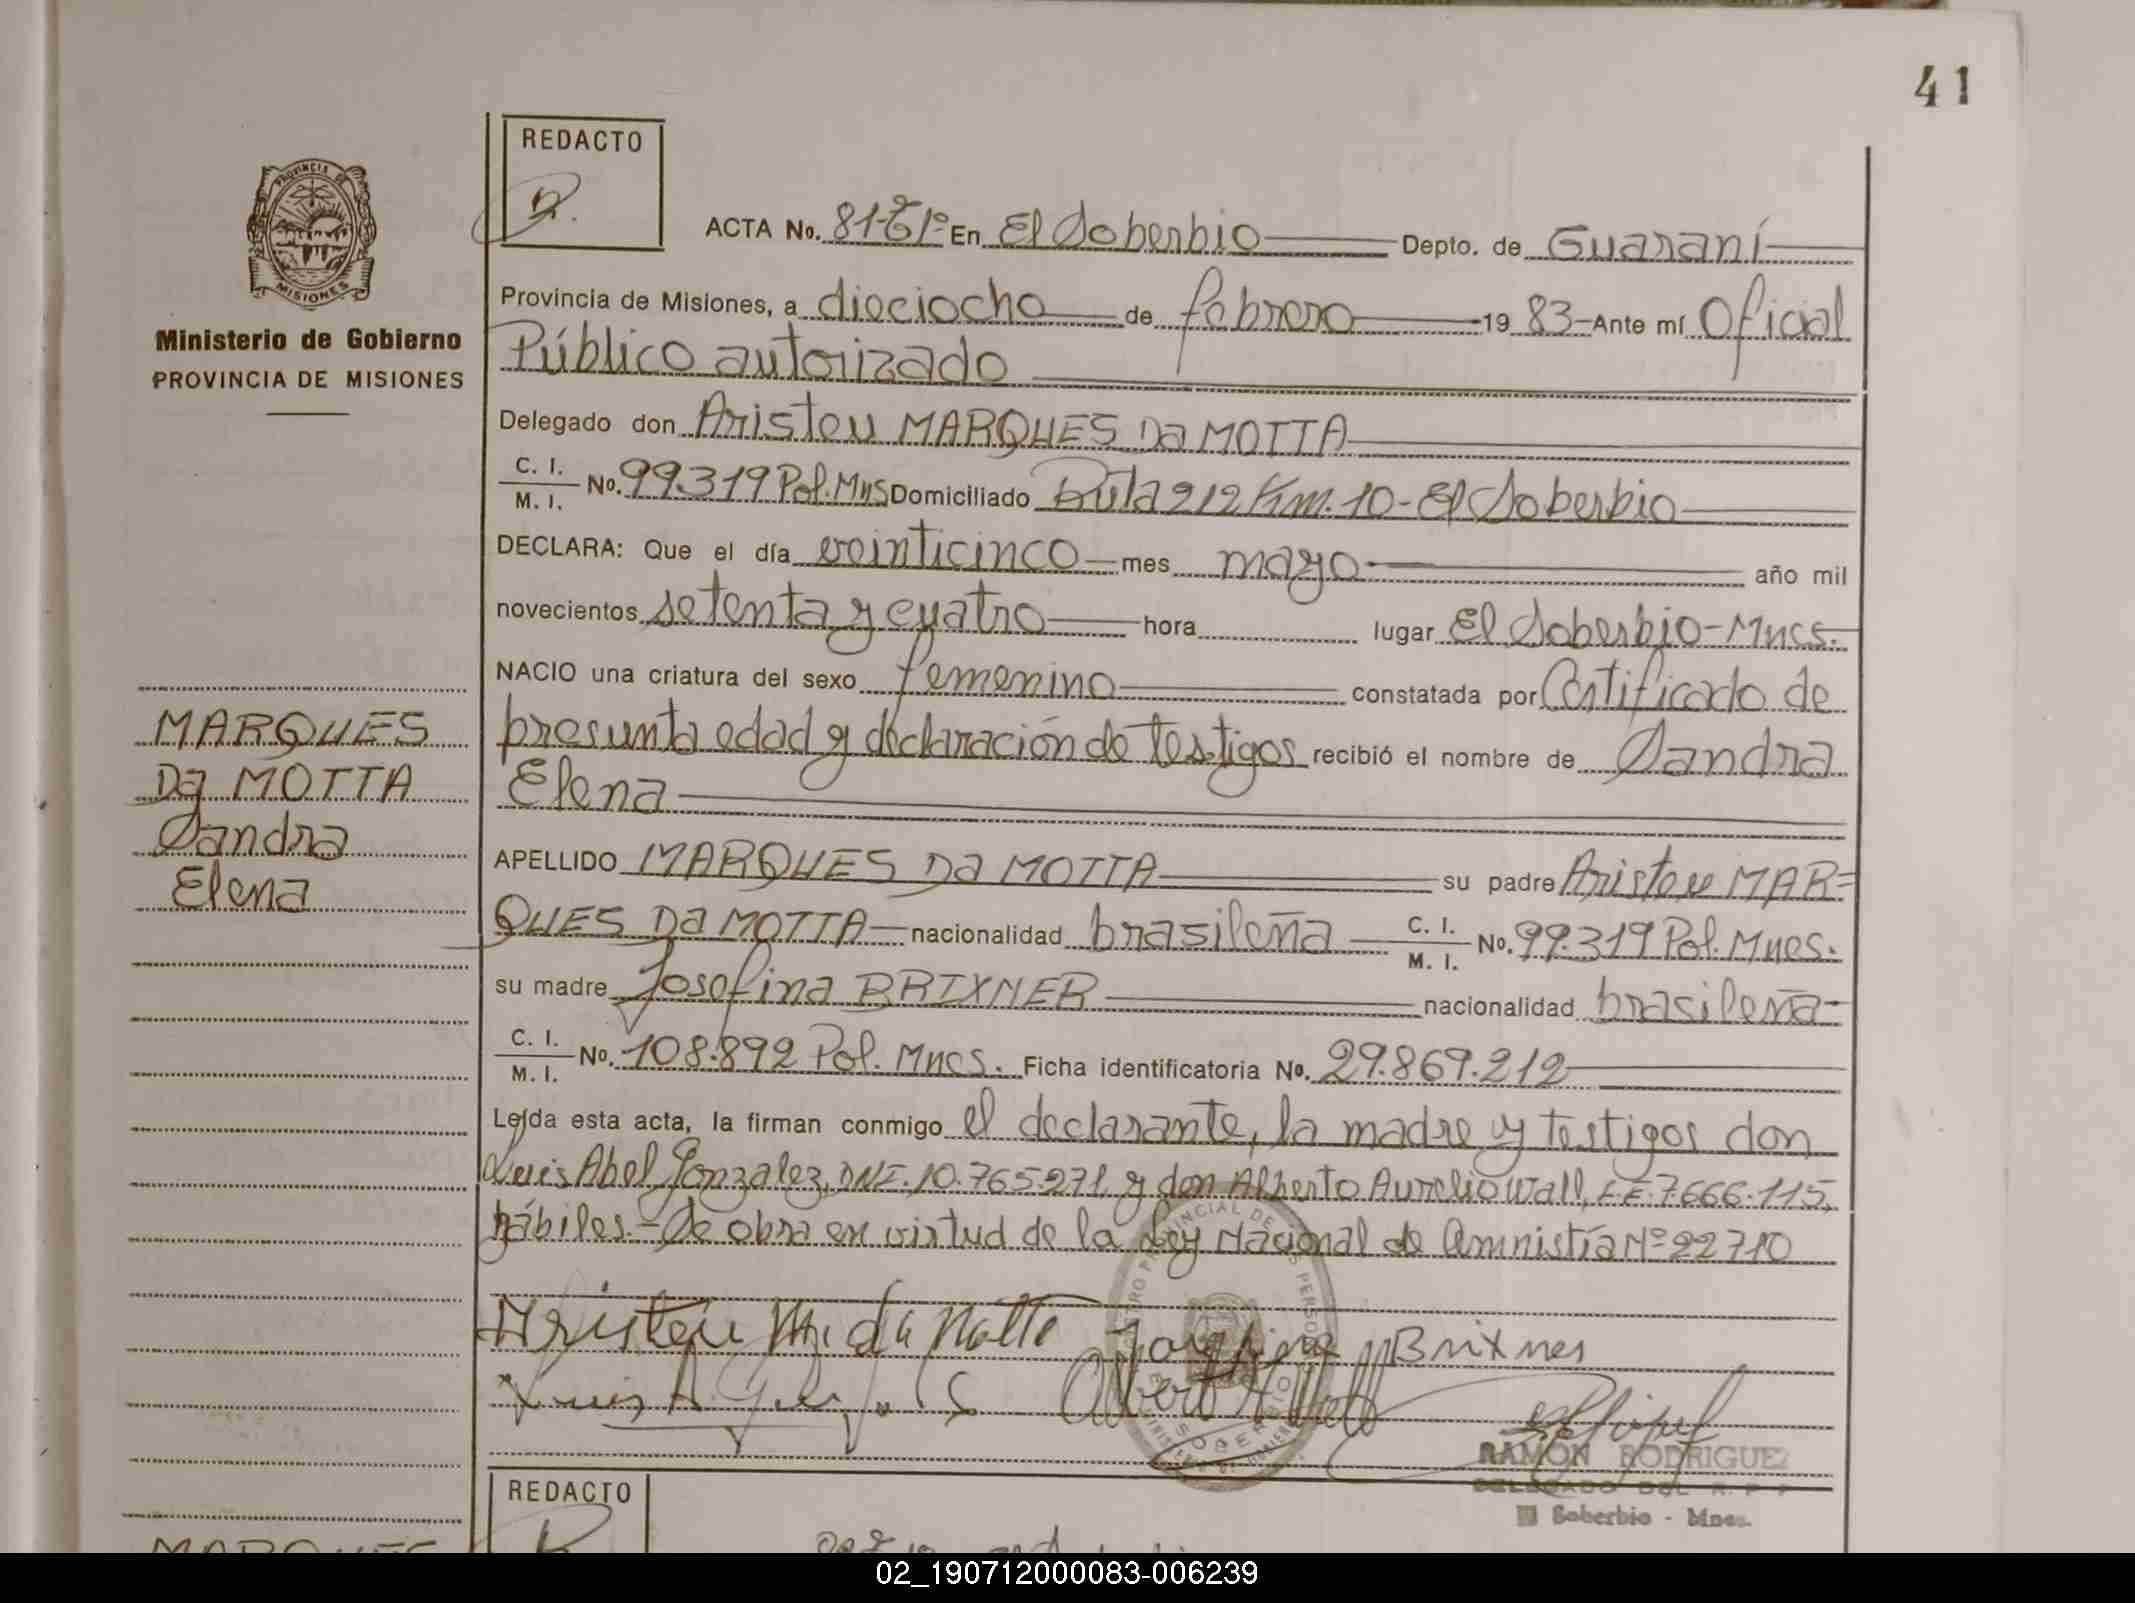 41
REDACTO
PROVINCIA DE
MISIONES
Ministerio de Gobierno
PROVINCIA DE MISIONES
ACTA No. 81-Tº 1º En El Soberbio Depto. de Guaraní
Provincia de Misiones, a dieciocho de febrero 19 83- Ante mí Oficial
Público autorizado
Delegado don Aristeu MARQUES Da MOTTA
C. I.
M. I. No. 99.319 Pol. Mns Domiciliado Ruta 212 Km. 10 - El Soberbio
DECLARA: Que el día veinticinco mes mayo año mil
novecientos setenta y cuatro hora lugar El Soberbio - Mnes.
NACIO una criatura del sexo femenino constatada por Certificado de
presunta edad y declaración de testigos recibió el nombre de Sandra
Elena
APELLIDO MARQUES Da MOTTA su padre Aristeu MAR=
QUES Da MOTTA nacionalidad brasileña C. I.
M. I. No. 99.319 Pol. Mnes.
su madre Josefina BRIXNER nacionalidad brasileña-
C. I.
M. I. No. 108.892 Pol. Mnes. Ficha identificatoria No. 29.869.212
Leída esta acta, la firman conmigo el declarante, la madre y testigos don
Luis Abel Gonzalez, DNI. 10.765.271, y don Alberto Aurelio Wall, L.E. 7.666.115,
hábiles.- Se obra en virtud de la Ley Nacional de Amnistía Nº 22710
MARQUES
Da MOTTA
Sandra
Elena
Aristeu M. da Motta Josefina Brixner
RAMON RODRIGUEZ
DELEGADO DEL R. P. P
El Soberbio - Mnes.
REDACTO
MARQUES
02_190712000083-006239